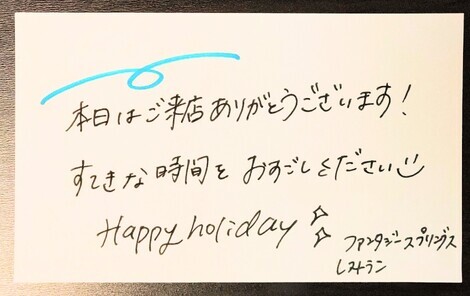 本日はご来店ありがとうございます!
すてきな時間をおすごしください
Happy holiday
ファンタジースプリングス
レストラン